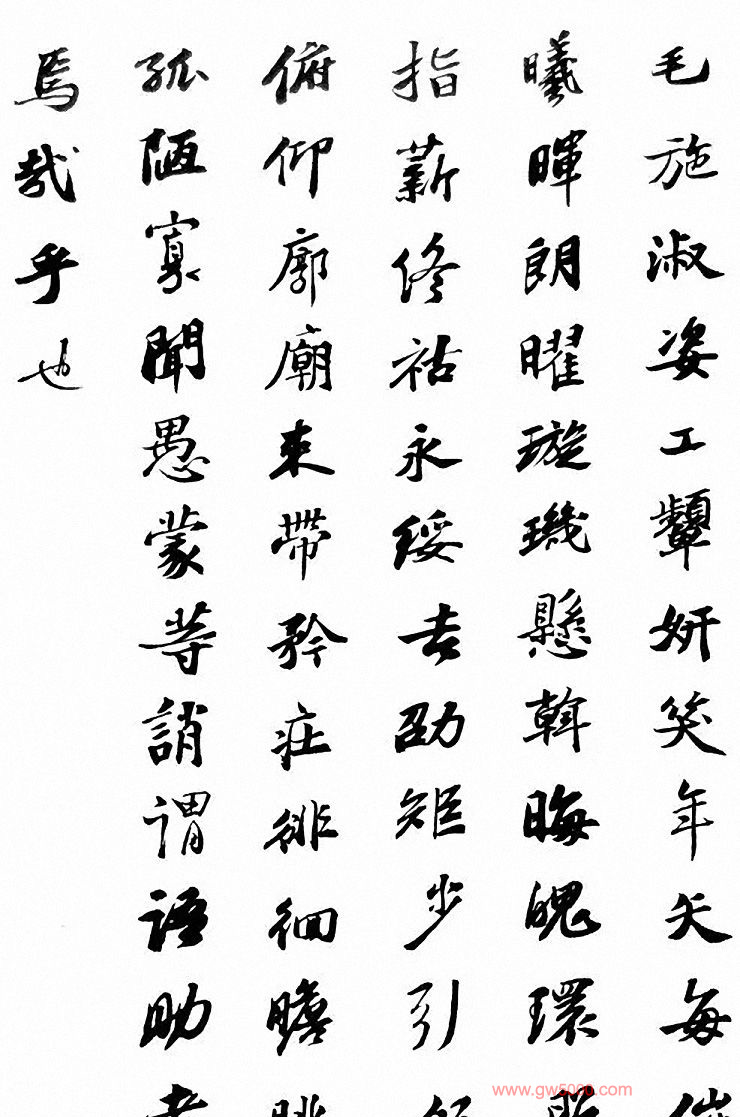 毛施淑姿工顰妍笑年矢每催
曦暉朗曜璇璣懸斡晦魄環
指薪修祜永綏吉劭矩步引
俯仰廊廟束帶矜莊徘徊瞻眺
孤陋寡聞愚蒙等誚謂語助者
焉哉乎也
www.gw5000.com